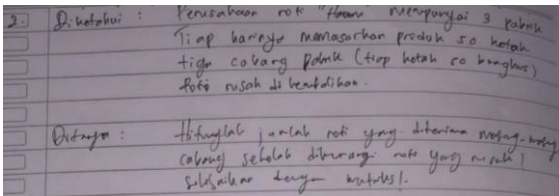 2. Diketahui : Perusahaan roti mempunyai 3 pabrik
Tiap harinya memasarkan produk 50 kotak
tiga cabang pabrik (tiap kotak 50 bungkus)
roti rusak di kembalikan.
Ditanya : Hitunglah jumlah roti yang diterima masing-masing
cabang setelah dikurangi roti yang rusak!
Selesaikan dengan matriks!.